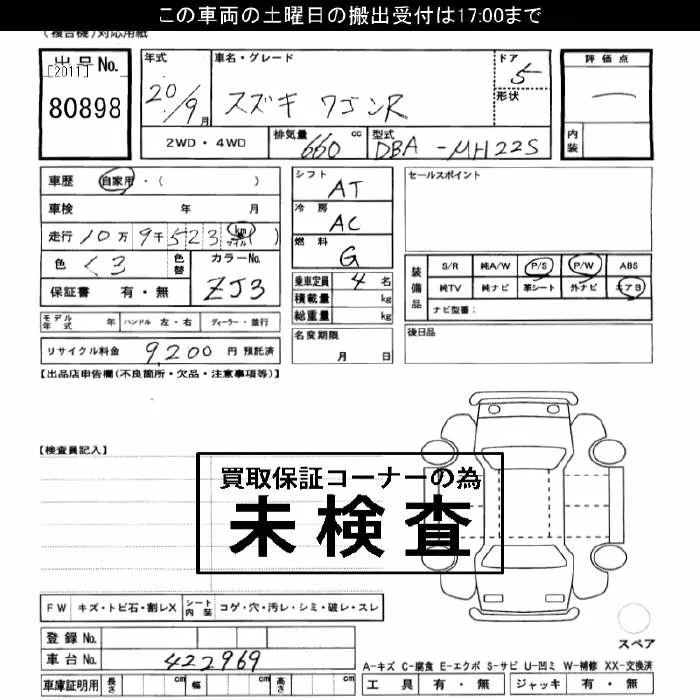 この車両の土曜日の搬出受付は17:00まで
(複合機)対応用紙
出品No. [2011] 80898
年式 20/9月
車名・グレード スズキ ワゴンR
ドア 5
形状
評価点 ―
内装
2WD・4WD 排気量 660 cc 型式 DBA-MH22S
車歴 自家用・( )
車検 年 月
走行 10万9千523 km マイル ( )
色 くろ 色替 カラーNo. ZJ3
保証書 有・無
シフト AT
冷房 AC
燃料 G
乗車定員 4名
積載量 kg
総重量 kg
セールスポイント
装備品 S/R 純A/W P/S P/W ABS
純TV 純ナビ 革シート 外ナビ エアB
ナビ型番:
モデル年式 年 ハンドル 左・右 ディーラー・並行
名変期限 月 日
後日品
リサイクル料金 9,200 円 預託済
【出品店申告欄(不良箇所・欠品・注意事項等)】
【検査員記入】
買取保証コーナーの為
未検査
FW キズ・トビ石・割レX シート内装 コゲ・穴・汚レ・シミ・破レ・スレ
登録No.
車台No. 422969
スペア
A-キズ C-腐食 E-エクボ S-サビ U-凹ミ W-補修 XX-交換済
車庫証明用 長さ cm 幅 cm 高さ cm
工具 有・無 ジャッキ 有・無